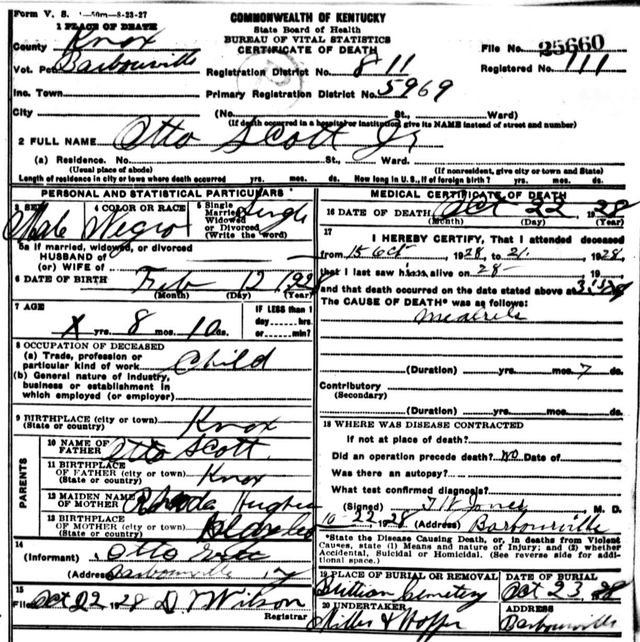 Form V. S. 1-50m-8-23-27
COMMONWEALTH OF KENTUCKY
State Board of Health
BUREAU OF VITAL STATISTICS
CERTIFICATE OF DEATH
1 PLACE OF DEATH
County Knox
File No. 25660
Vot. Pct Barbourville
Registration District No. 811
Registered No. 111
Inc. Town
Primary Registration District No. 5969
City (No. St., Ward)
(If death occurred in a hospital or institution, give its NAME instead of street and number)
2 FULL NAME Otto Scott Jr
(a) Residence. No. St., Ward.
(Usual place of abode) (If nonresident, give city or town and State)
Length of residence in city or town where death occurred yrs. mos. ds. How long in U. S., if of foreign birth? yrs. mos. ds.
PERSONAL AND STATISTICAL PARTICULARS
3 SEX Male
4 COLOR OR RACE Negro
5 Single Married Widowed or Divorced (Write the word) Single
5a If married, widowed, or divorced
HUSBAND of
(or) WIFE of
6 DATE OF BIRTH Feb 12 1928
(Month) (Day) (Year)
7 AGE X yrs. 8 mos. 10 ds.
IF LESS than 1
day----hrs.
or----min?
8 OCCUPATION OF DECEASED
(a) Trade, profession or
particular kind of work Child
(b) General nature of industry,
business or establishment in
which employed (or employer)
9 BIRTHPLACE (city or town) Knox
(State or country)
PARENTS
10 NAME OF
FATHER Otto Scott
11 BIRTHPLACE
OF FATHER (city or town) Knox
(State or country)
12 MAIDEN NAME
OF MOTHER Rhoda Hughes
13 BIRTHPLACE
OF MOTHER (city or town)
(State or country)
14
(Informant) Otto Scott
(Address) Barbourville Ky
15
Filed Oct 22 1928 D Wilson
Registrar
MEDICAL CERTIFICATE OF DEATH
16 DATE OF DEATH Oct 22 1928
(Month) (Day) (Year)
17
I HEREBY CERTIFY, That I attended deceased
from 15 Oct 1928, to 21. 1928,
that I last saw him alive on 28- 19
and that death occurred on the date stated above at
The CAUSE OF DEATH* was as follows:
(Duration) yrs. mos. 7 ds.
Contributory
(Secondary)
(Duration) yrs. mos. ds.
18 WHERE WAS DISEASE CONTRACTED
If not at place of death?
Did an operation precede death? no Date of
Was there an autopsy?
What test confirmed diagnosis?
(Signed) Jones M. D.
10-22 1928 (Address) Barbourville
*State the Disease Causing Death, or, in deaths from Violent
Causes, state (1) Means and nature of Injury; and (2) whether
Accidental, Suicidal or Homicidal. (See reverse side for additional space.)
19 PLACE OF BURIAL OR REMOVAL
Cemetery
DATE OF BURIAL
Oct 23 28
20 UNDERTAKER
Miller & Hopper
ADDRESS
Barbourville